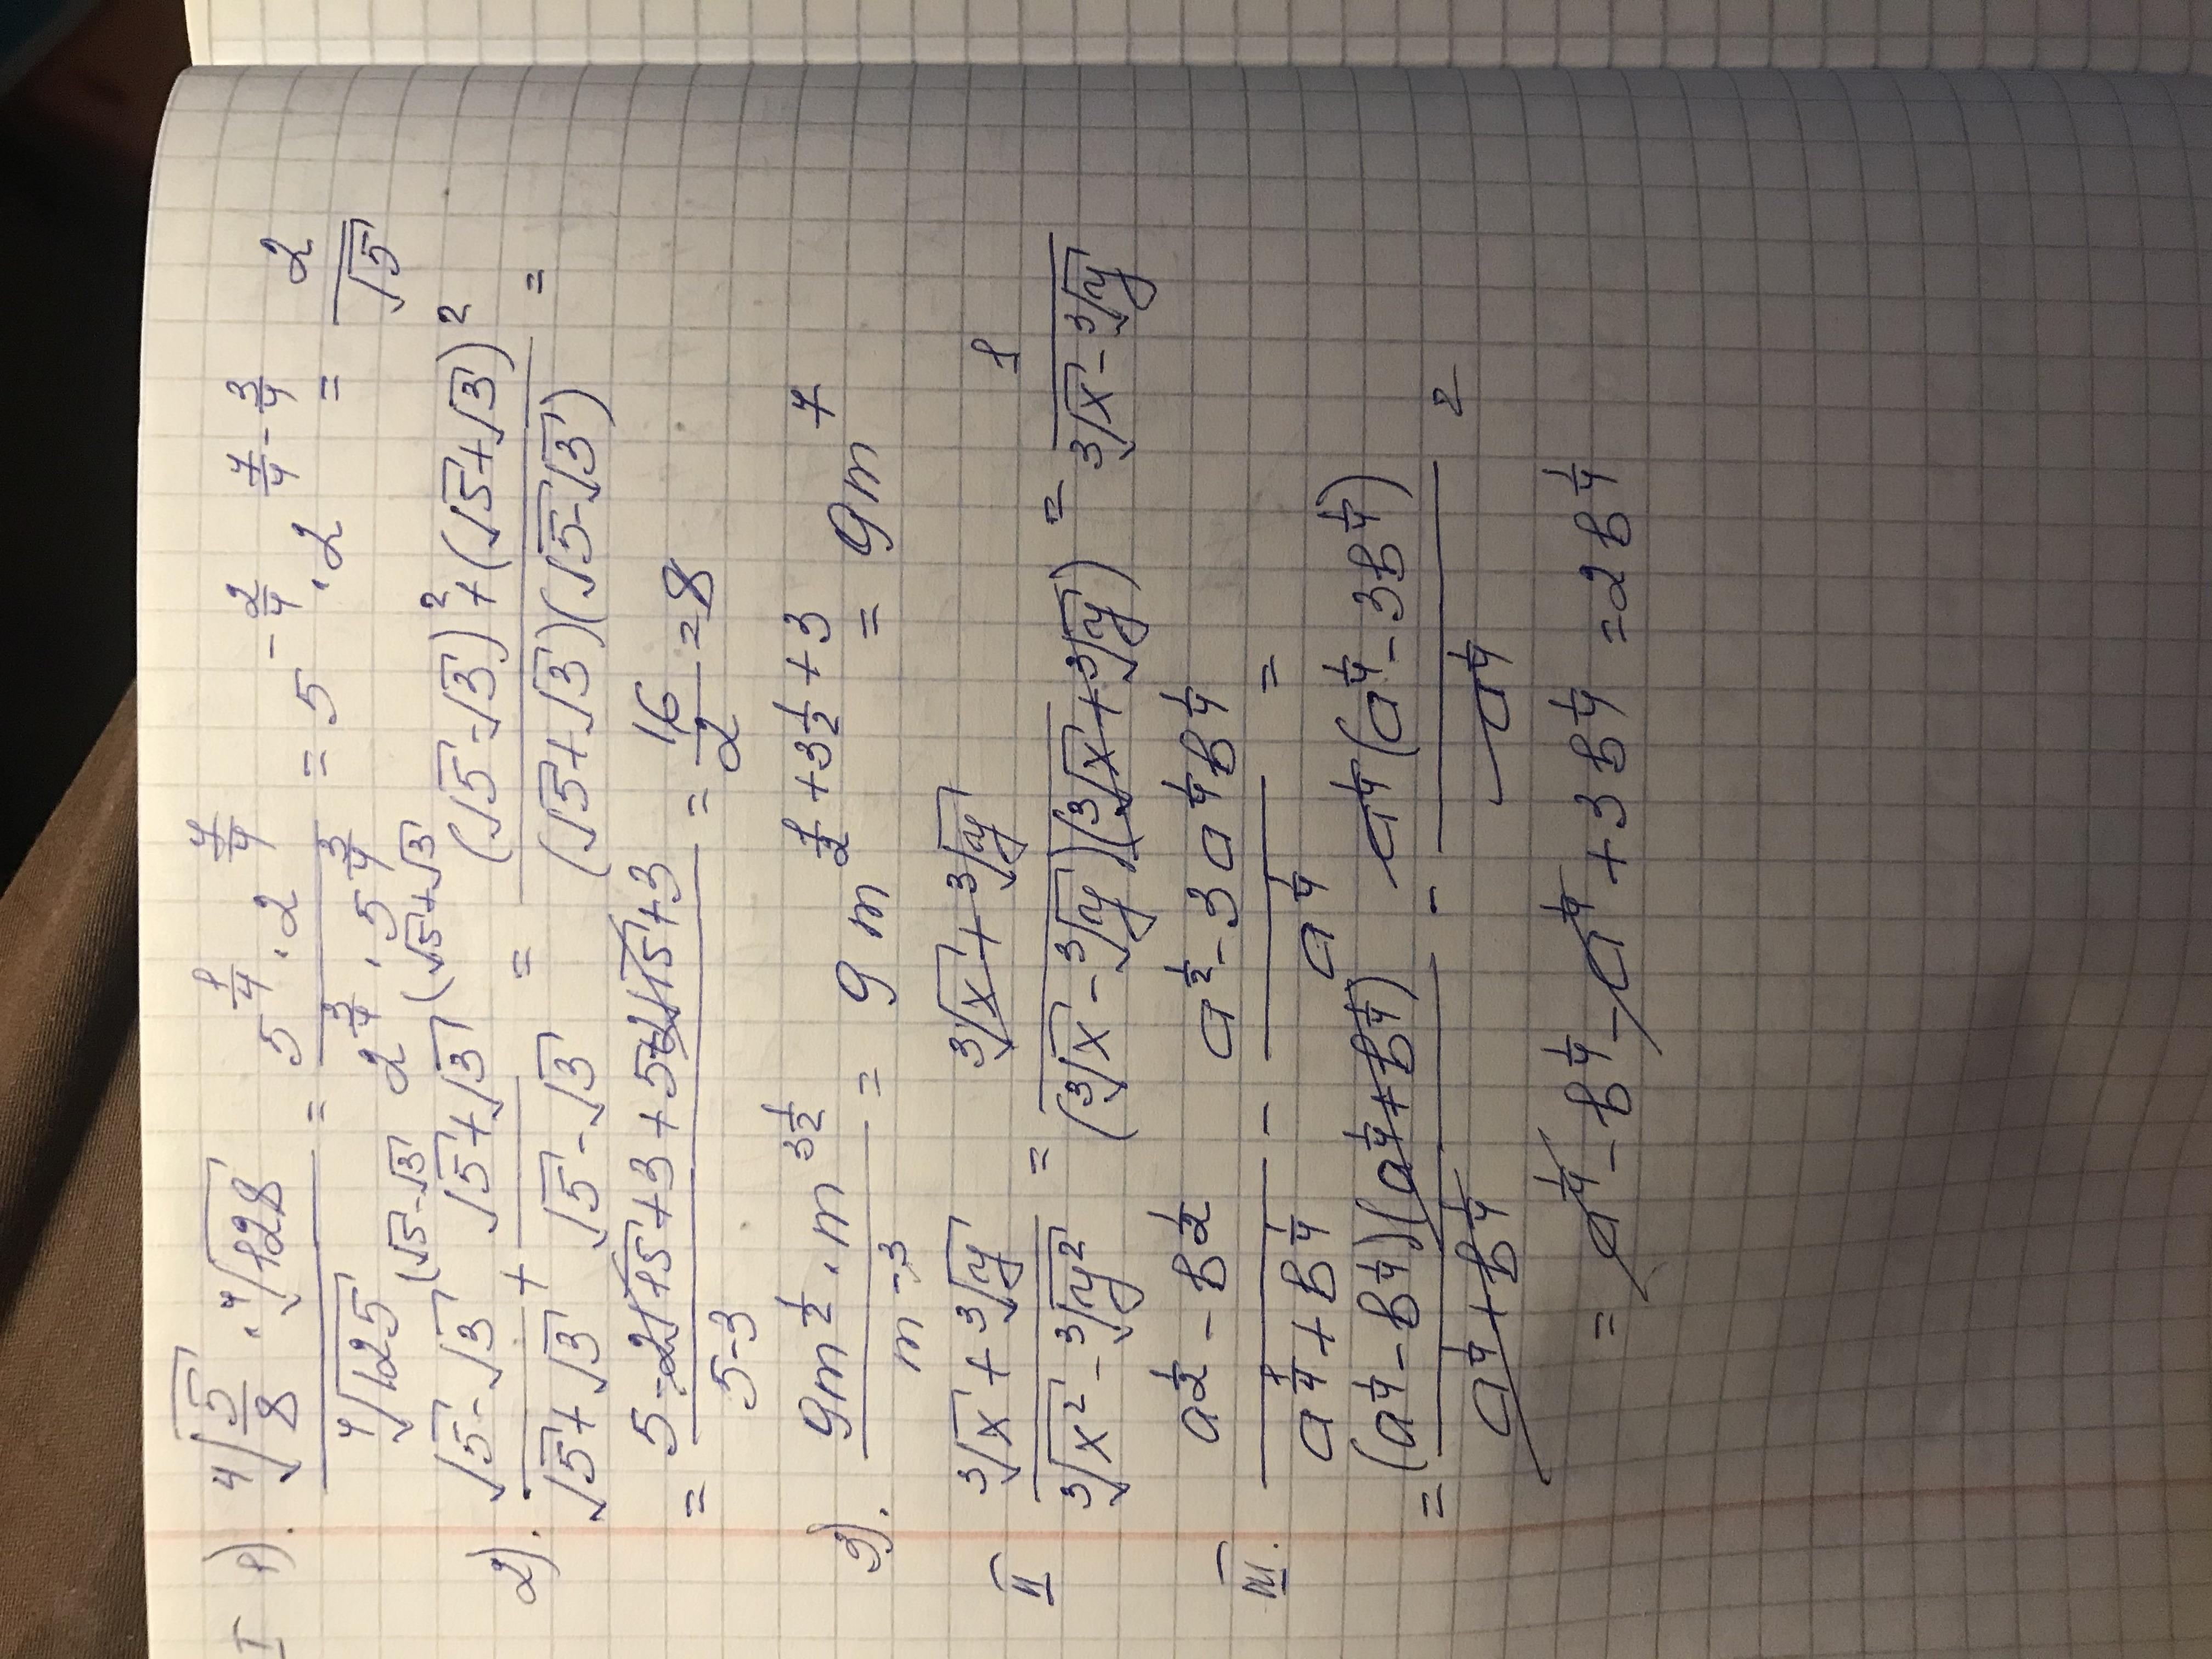 I 1). (⁴√(5/8) · ⁴√128) / ⁴√125 = (5^(1/4) · 2^(7/4)) / (2^(3/4) · 5^(3/4)) = 5^(-2/4) · 2^(7/4 - 3/4) = 2/√5
2). (√5 - √3)/(√5 + √3) (√5-√3) + (√5 + √3)/(√5 - √3) (√5+√3) = ((√5 - √3)² + (√5 + √3)²) / ((√5 + √3)(√5 - √3)) =
= (5 - 2√15 + 3 + 5 + 2√15 + 3) / (5-3) = 16/2 = 8
3). (9m^(1/2) · m^(3 1/2)) / m^(-3) = 9m^(1/2 + 3 1/2 + 3) = 9m^7
II (³√x + ³√y) / (³√x² - ³√y²) = (³√x + ³√y) / ((³√x - ³√y)(³√x + ³√y)) = 1 / (³√x - ³√y)
III. (a^(1/2) - b^(1/2)) / (a^(1/4) + b^(1/4)) - (a^(1/2) - 3a^(1/4)b^(1/4)) / a^(1/4) =
= ((a^(1/4) - b^(1/4))(a^(1/4) + b^(1/4))) / (a^(1/4) + b^(1/4)) - (a^(1/4)(a^(1/4) - 3b^(1/4))) / a^(1/4) =
= a^(1/4) - b^(1/4) - a^(1/4) + 3b^(1/4) = 2b^(1/4)